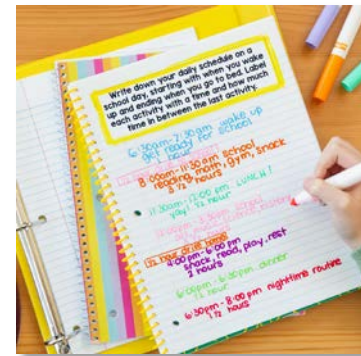 Write down your daily schedule on a
school day, starting with when you wake
up and ending when you go to bed. Label
each activity with a time and how much
time in between the last activity.
6:30am-7:30am wake up
get ready for school
1 hour
8:00am-11:30am school
reading, math, gym, snack
3 1/2 hours
11:30am-12:00pm LUNCH!
yay! 1/2 hour
1/2 hour drive home
4:00pm-6:00pm
snack, read, play, rest
2 hours
6:00pm-6:30pm dinner
1/2 hour
6:30pm-8:00pm nighttime routine
1 1/2 hours